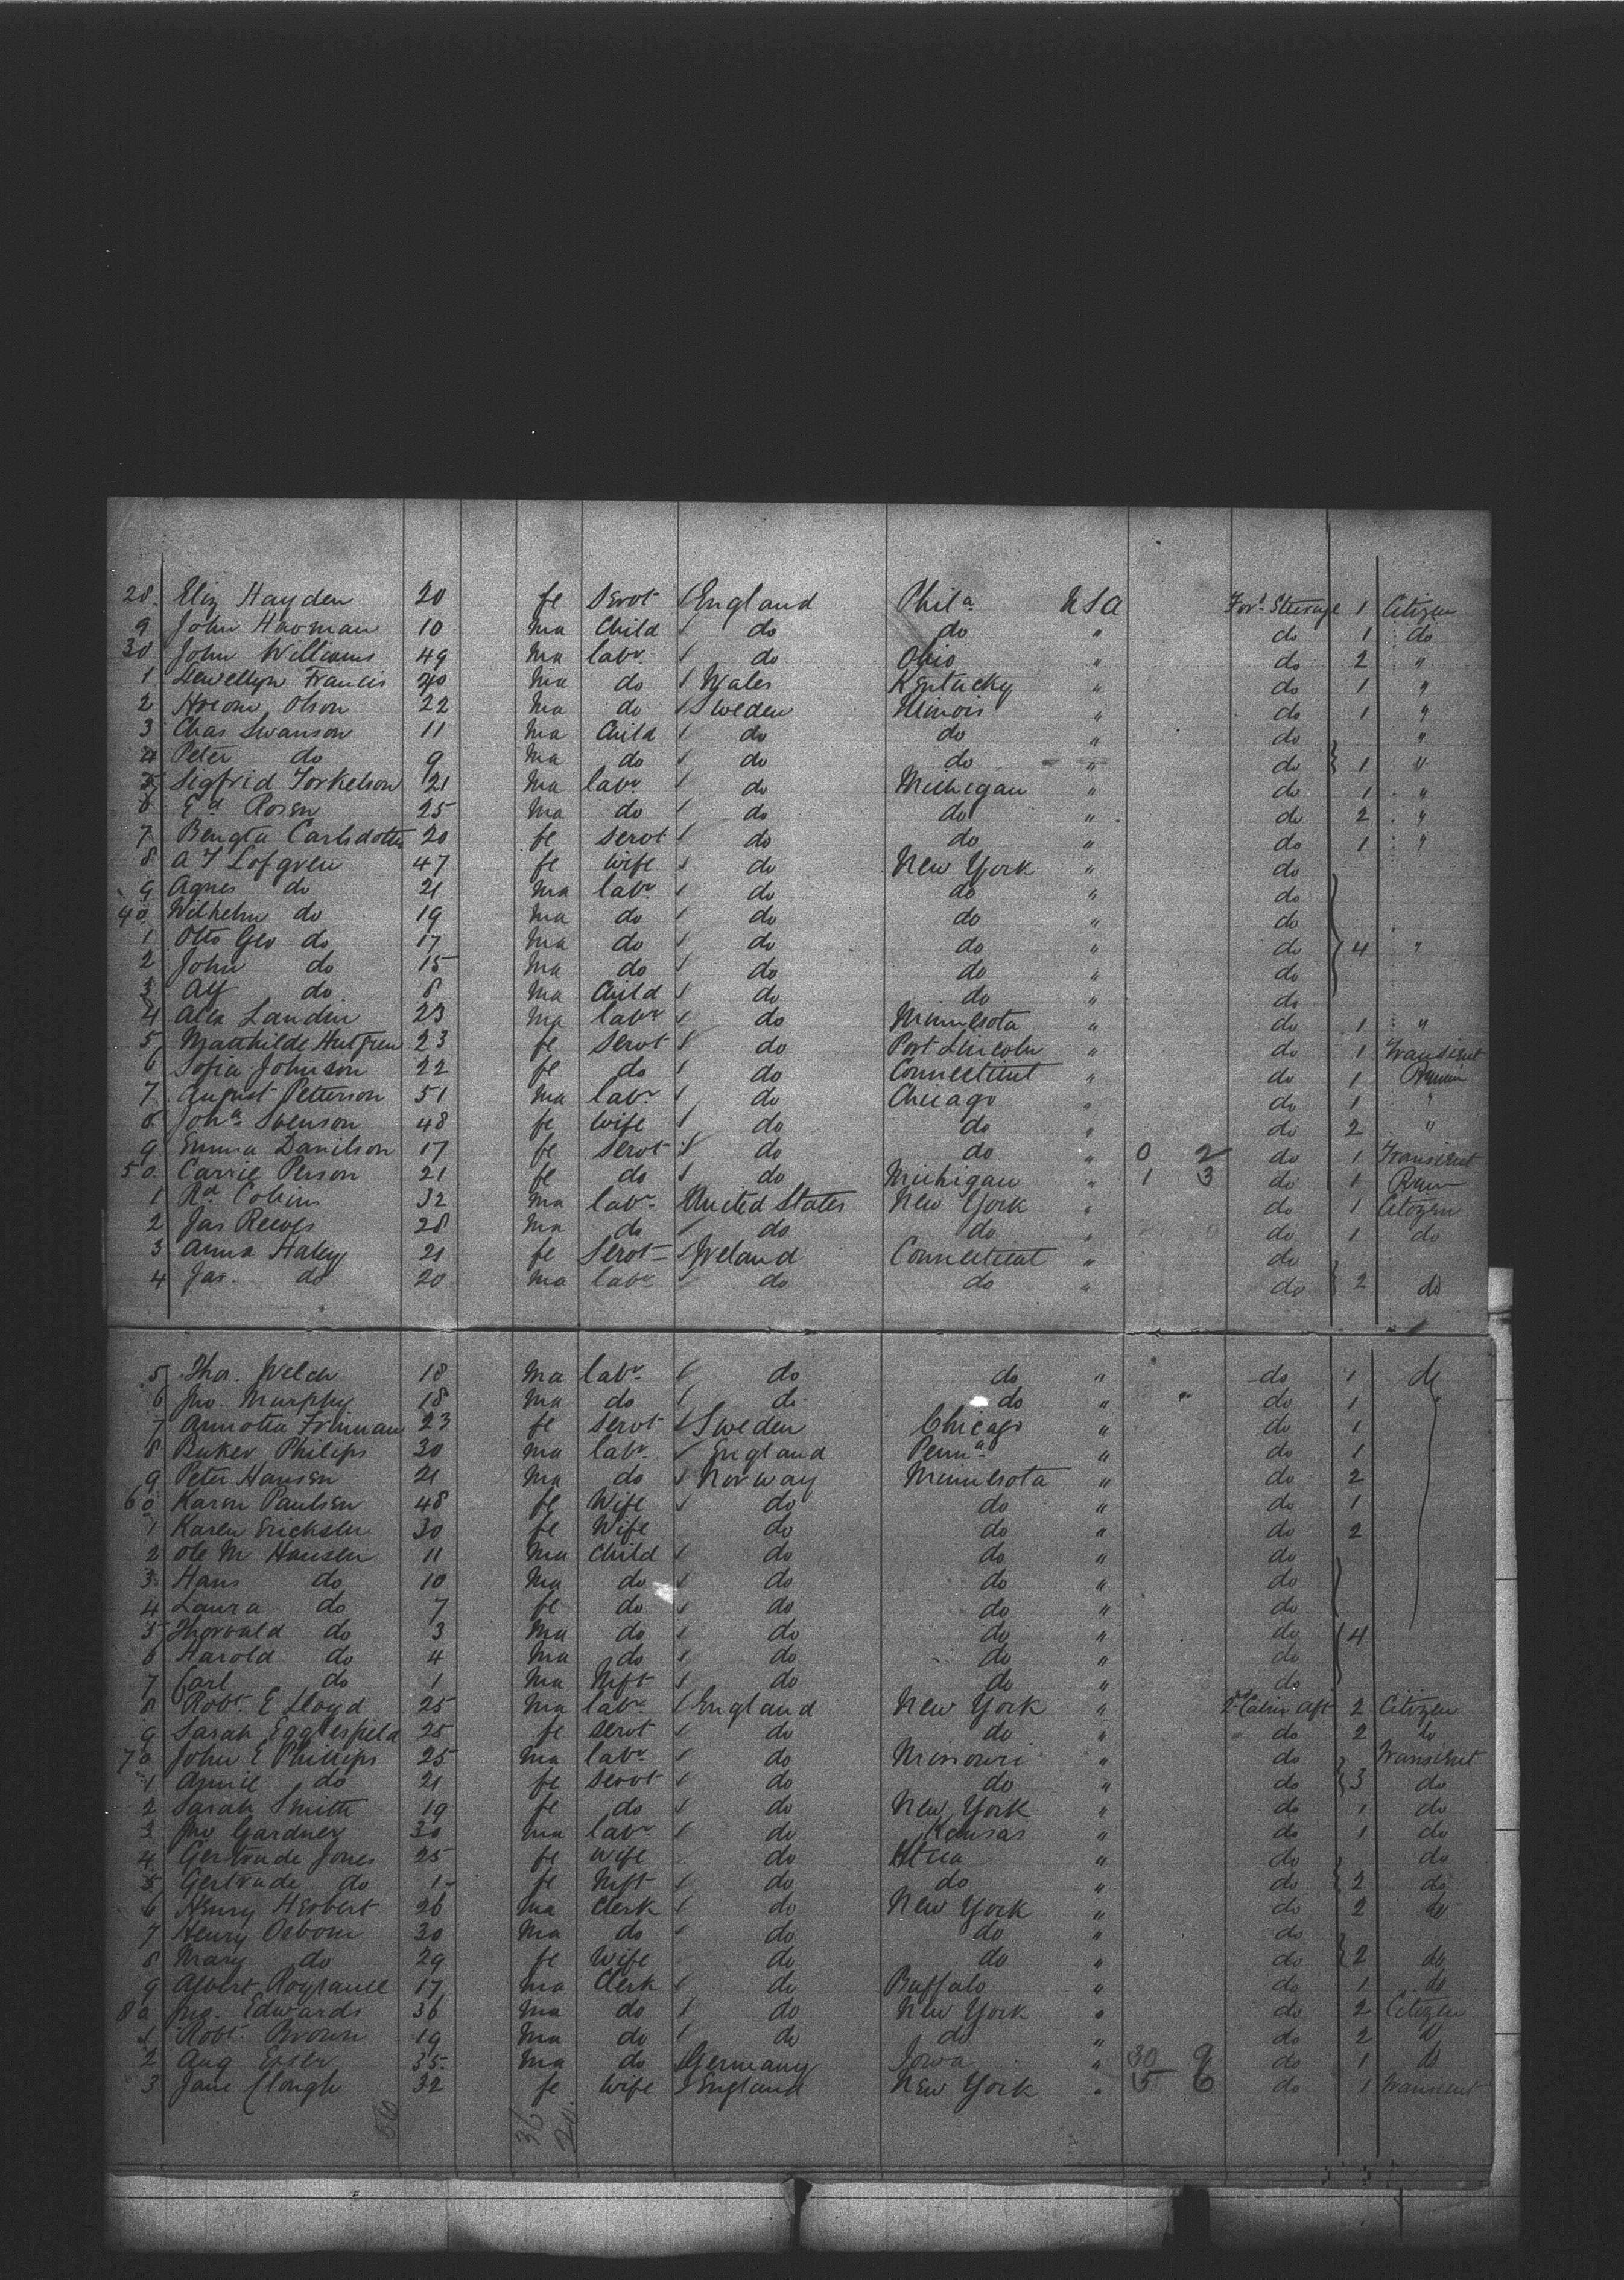 28. Eliz Hayden 20 fe Servt England Phila. USA Ford. Steerage 1 Citizen
9 John Harman 10 ma Child do do " do 1 do
30 John Williams 49 ma labr. do Ohio " do 2 "
1 Llewellyn Francis 40 ma do Wales Kentucky " do 1 "
2 Olson 22 ma do Sweden Illinois " do 1 "
3 Chas Swanson 11 ma Child do do " do "
4 Peter do 9 ma do do do " do 1 "
5 Sigfrid Torkelson 21 ma labr. do Michigan " do 1 "
6 Ed Rosen 25 ma do do do " do 2 "
7 Bengta Carlsdotter 20 fe Servt do do " do 1 "
8 A F Lofgren 47 fe Wife do New York " do
9 Agnes do 21 ma labr. do do " do
40. Wilhelm do 19 ma do do do " do
1 Otto Geo do 17 ma do do do " do 4 "
2 John do 15 ma do do do " do
3 Alf do 8 ma Child do do " do
4 Alex Landin 23 ma labr do Minnesota " do 1 "
5 Matthilde Hultgren 23 fe Servt do Port Lincoln " do 1 Transient
6 Sofia Johnson 22 fe do do Connecticut " do 1 Remain
7. August Petterson 51 ma labr do Chicago " do 1 "
8. Joha. Svenson 48 fe Wife do do " do 2 "
9 Emma Danilson 17 fe Servt do do " 0 2 do 1 Transient
50. Carrie Person 21 fe do do Michigan " 1 3 do 1 Rem
1 Rd Collins 32 ma labr. United States New York " do 1 Citizen
2 Jas Reeves 28 ma do do do " do 1 do
3 Anna Haley 21 fe Servt Ireland Connecticut " do
4 Jas. do 20 ma labr do do " do 2 do
5 Thos. Welch 18 ma labr. do do " do 1 do
6 Jno. Murphy 18 ma do do do " do 1
7 Annotta Friman 23 fe Servt Sweden Chicago " do 1
8 Baker Philips 30 ma labr. England Penna " do 1
9 Peter Hansen 21 ma do Norway Minnesota " do 2
60 Karen Paulsen 48 fe Wife do do " do 1
1 Karen Ericksen 30 fe Wife do do " do 2
2 Ole M Hansen 11 ma Child do do " do
3 Hans do 10 ma do do do " do
4 Laura do 7 fe do do do " do
5 Thorvald do 3 ma do do do " do 4
6 Harold do 4 ma do do do " do
7 Carl do 1 ma Inft do do " do
8 Robt. E Lloyd 25 ma labr. England New York " 2d Cabin Aft 2 Citizen
9 Sarah Egglesfield 25 fe Servt do do " do 2 do
70 John E Phillips 25 ma labr. do Missouri " do Transient
1 Annie do 21 fe Servt do do " do 3 do
2 Sarah Smith 19 fe do do New York " do 1 do
3 Jno Gardner 30 ma labr do Kansas " do 1 do
4 Gertrude Jones 25 fe Wife do Utica " do do
5 Gertrude do 1 fe Inft do do " do 2 do
6 Henry Herbert 26 ma Clerk do New York " do 2 do
7 Henry Osborn 30 ma do do do " do
8 Mary do 29 fe Wife do do " do 2 do
9 Albert 17 ma Clerk do Buffalo " do 1 do
80 Jno. Edwards 36 ma do do New York " do 2 Citizen
1 Robt. Brown 19 ma do do do " do 2 do
2 Aug Esser 35 ma do Germany Iowa " 30 9 do 1 do
3 Jane Clough 32 fe Wife England New York " 5 6 do 1 Transient
56 36 20